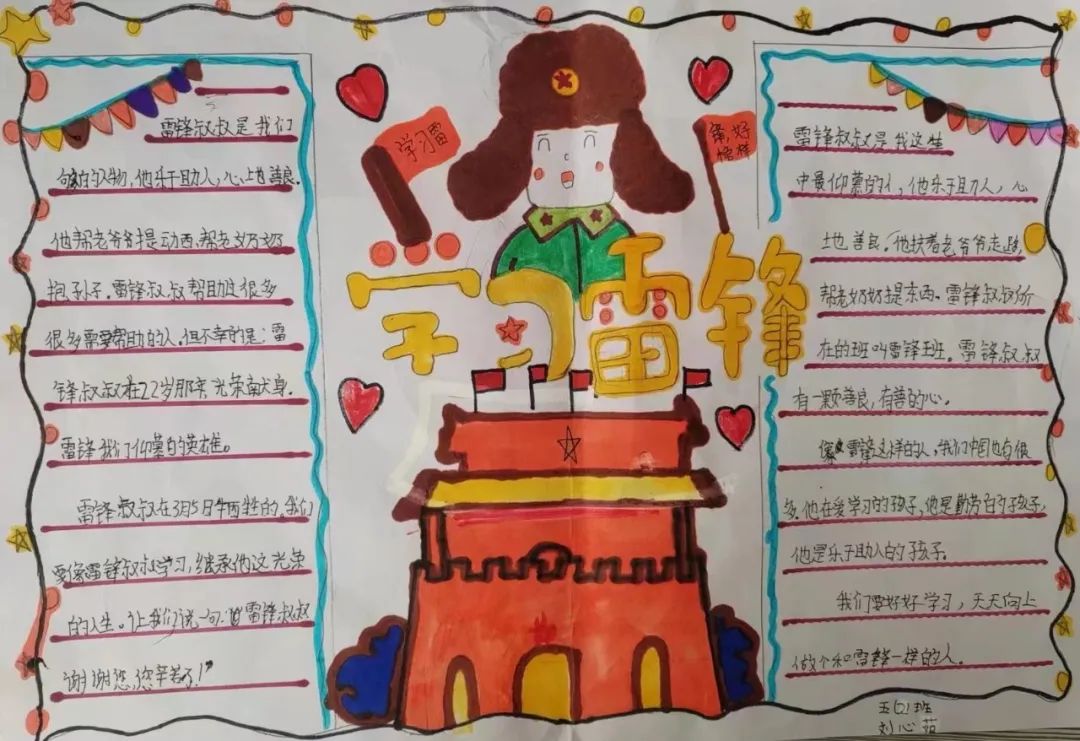 学习雷
锋,好
榜样
学习雷锋
雷锋叔叔是我们
的人物,他乐于助人,心地善良.
他帮老爷爷提动西,帮老奶奶
抱孙子.雷锋叔叔帮助过很多
很多需要帮助的人.但不幸的是:雷
锋叔叔在22岁那年光荣献身.
雷锋我们仰慕的英雄。
雷锋叔叔在3月5日牺牲的.我们
要像雷锋叔叔学习,继承他这光荣
的人生。让我们说一句:"雷锋叔叔
谢谢您,您辛苦了!"
雷锋叔叔是我这生
中最仰慕的人,他乐于助人,心
地善良.他扶着老爷爷走路,
帮老奶奶提东西.雷锋叔叔所
在的班叫雷锋班。雷锋叔叔
有一颗善良,有善的心.
像雷锋这样的人,我们中国也有很
多.他在爱学习的孩子,他是勤劳的孩子,
他是乐于助人的孩子.
我们要好好学习,天天向上
做个和雷锋一样的人.
五(2)班
刘心茹